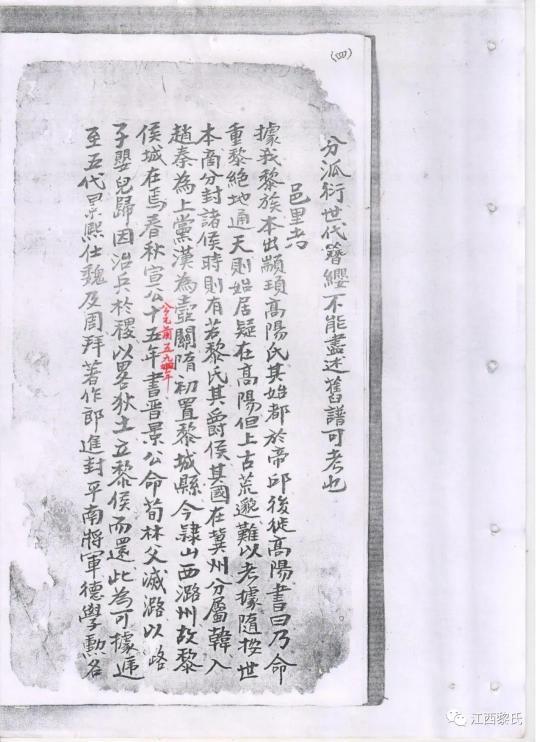 (四)
分派衍世代簪纓不能盡述舊譜可考也
邑里考
據我黎族本出顓頊高陽氏其始都於帝邱後徙高陽書曰乃命
重黎絕地通天則始居疑在高陽但上古荒邈難以考據隨按世
本商分封諸侯時則有若黎氏其爵侯其國在冀州分屬韓入
趙秦為上黨漢為壺關隋初置黎城縣今隸山西潞州故黎
侯城在焉春秋宣公十五年書晉景公命荀林父滅潞以路
公元前五九四年
子嬰兒歸因治兵於稷以畧狄土立黎侯而還此為可據遞
至五代景熙仕魏及周拜著作郎進封平南將軍德學勳名
江西黎氏